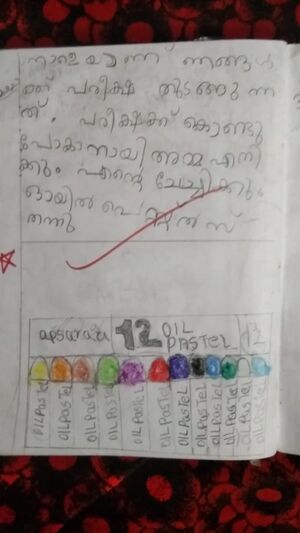 നാളെയാണ് ഞങ്ങൾ
ക്ക് പരീക്ഷ തുടങ്ങുന്ന
ത്. പരീക്ഷക്ക് കൊണ്ടു
പോകാനായി അമ്മ എനി
ക്കും എന്റെ ചേച്ചിക്കും
ഓയിൽ പേസ്റ്റൽസ്
തന്നു
apsara 12 OIL PASTEL 12
OIL PASTEL OIL PASTEL OIL PASTEL OIL PASTEL OIL PASTEL OIL PASTEL OIL PASTEL OIL PASTEL OIL PASTEL OIL PASTEL OIL PASTEL OIL PASTEL